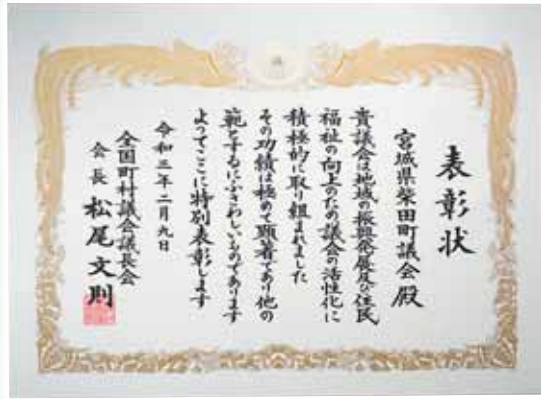 表彰状
宮城県柴田町議会殿
貴議会は地域の振興発展及び住民
福祉の向上のため議会の活性化に
積極的に取り組まれました
その功績は極めて顕著であり他の
範とするにふさわしいものであります
よってここに特別表彰します
令和三年二月九日
全国町村議会議長会
会長 松尾文則